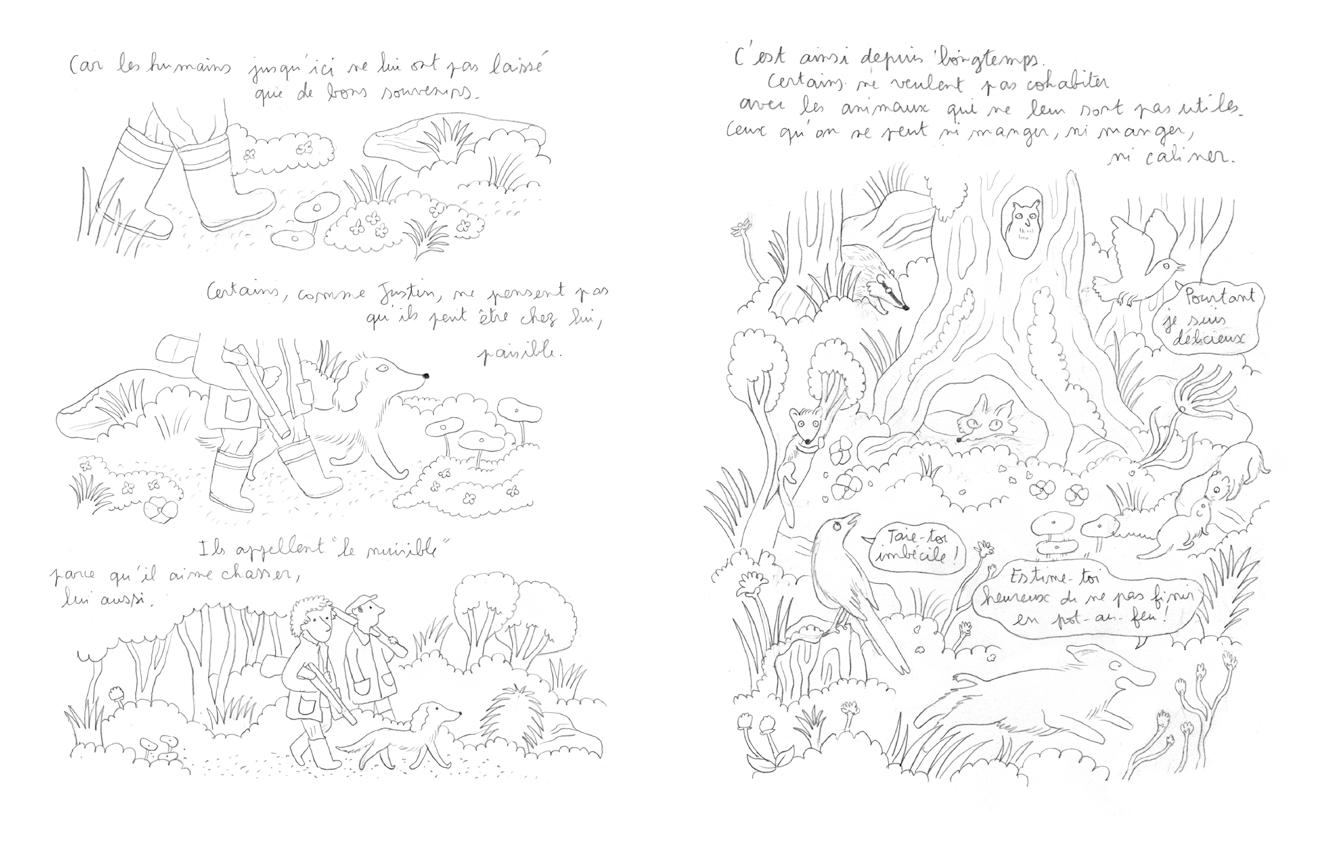 Car les humains jusqu'ici ne lui ont pas laissé
que de bons souvenirs.
Certains, comme Justin, ne pensent pas
qu'ils peut être chez lui,
paisible.
Ils appellent "le nuisible"
parce qu'il aime chasser,
lui aussi.
C'est ainsi depuis longtemps.
Certains ne veulent pas cohabiter
avec les animaux qui ne leur sont pas utiles.
Ceux qu'on ne peut ni manger, ni manger,
ni caliner.
Pourtant
je suis
délicieux
Taie-toi
imbécile !
Estime-toi
heureux di ne pas finir
en pot-au-feu !